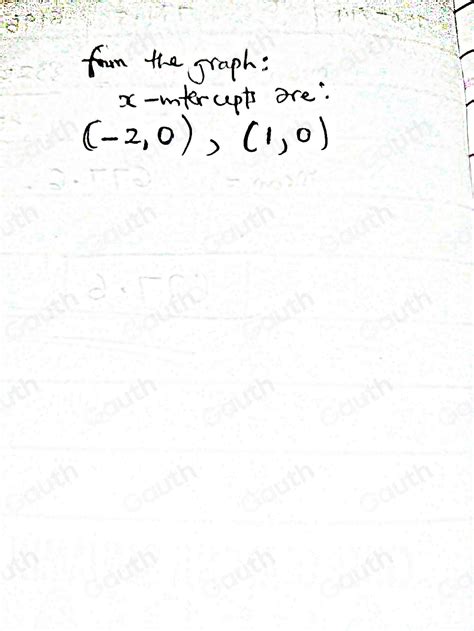 from the graph:
x-intercepts are:
(-2,0), (1,0)